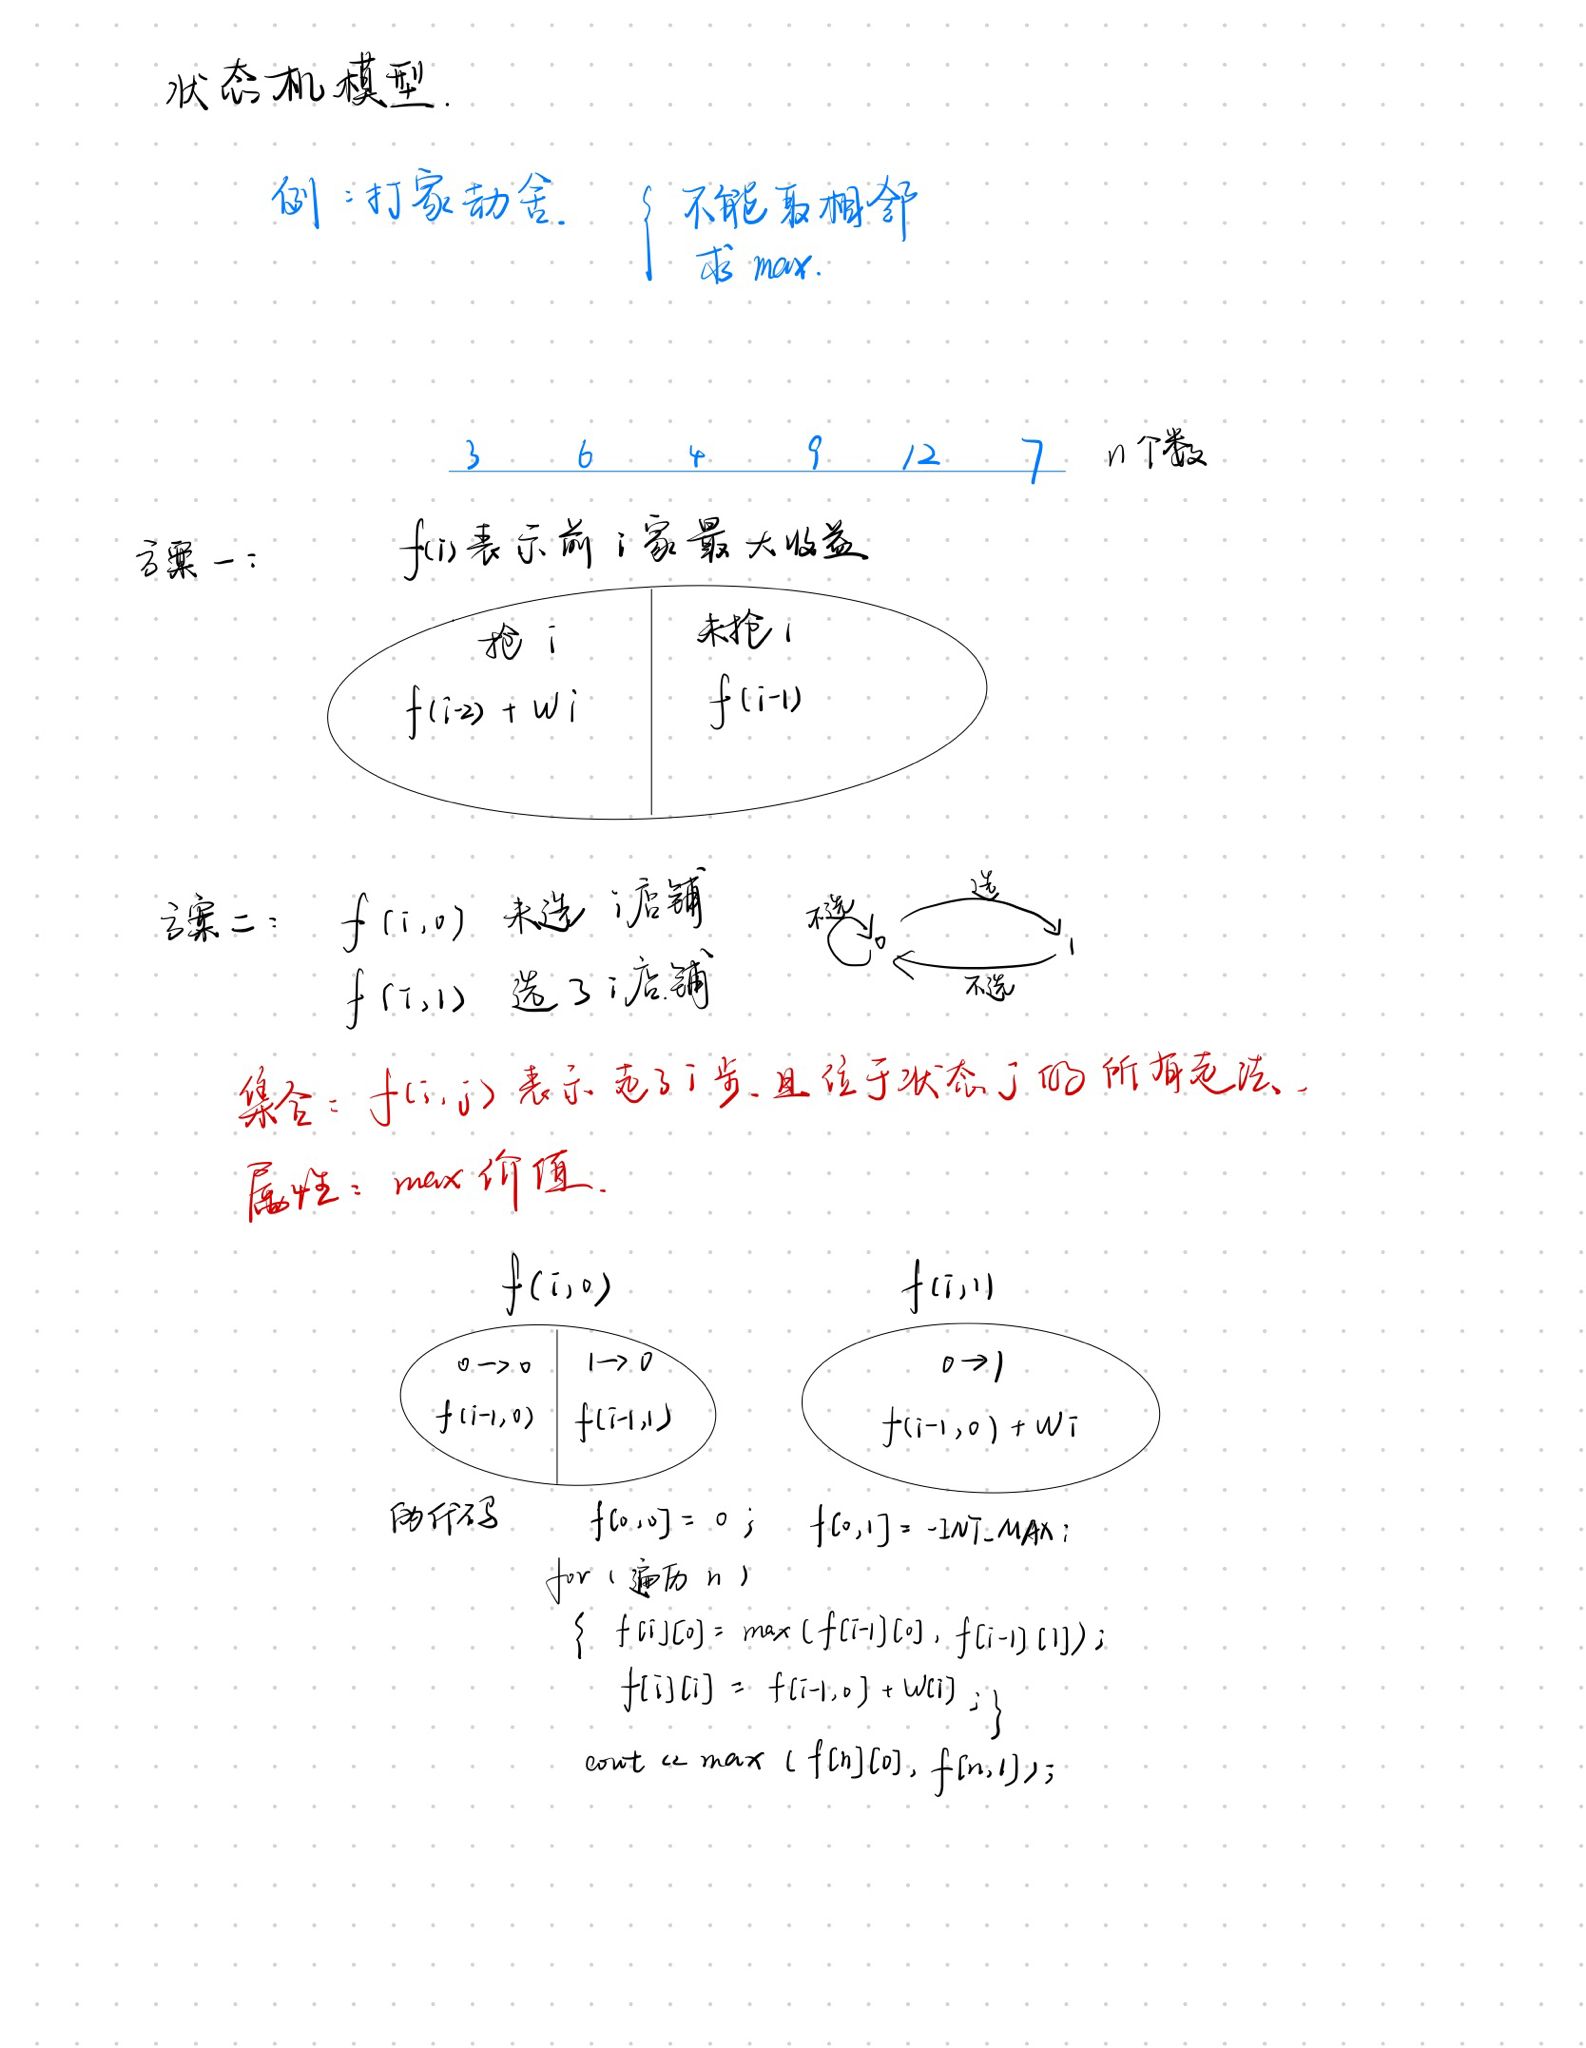 状态机模型.
例:打家劫舍. { 不能取相邻
求 max.
3 6 4 9 12 7 n个数
方案一: f(i)表示前i家最大收益
抢i 未抢i
f(i-2)+Wi f(i-1)
方案二: f(i,0) 未选i店铺
f(i,1) 选了i店铺
选
不选 0 1
不选
集合: f(i,j)表示走了i步、且位于状态j的所有走法.
属性: max价值.
f(i,0) f(i,1)
0→0 1→0 0→1
f(i-1,0) f(i-1,1) f(i-1,0)+Wi
f[0,0]=0; f[0,1]=-INT_MAX;
for(遍历n)
{ f[i][0]=max(f[i-1][0], f[i-1][1]);
f[i][i] = f[i-1,0]+W[i];}
cout << max(f[n][0], f[n,1]);